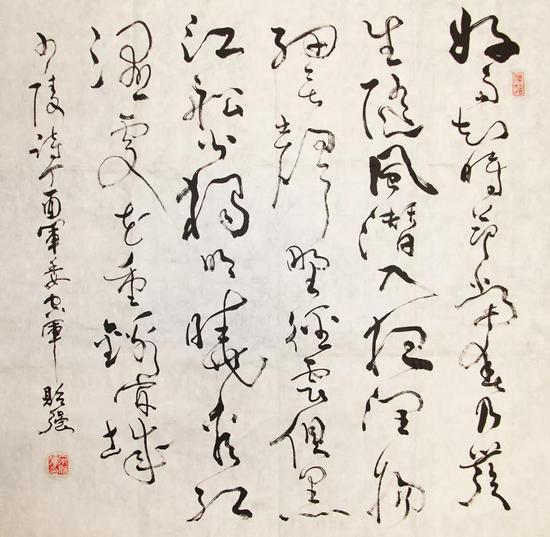 好雨知時節當春乃發
生隨風潛入夜潤物
細無聲野徑雲俱黑
江船火獨明曉看紅
濕處花重錦官城
少陵詩丁酉